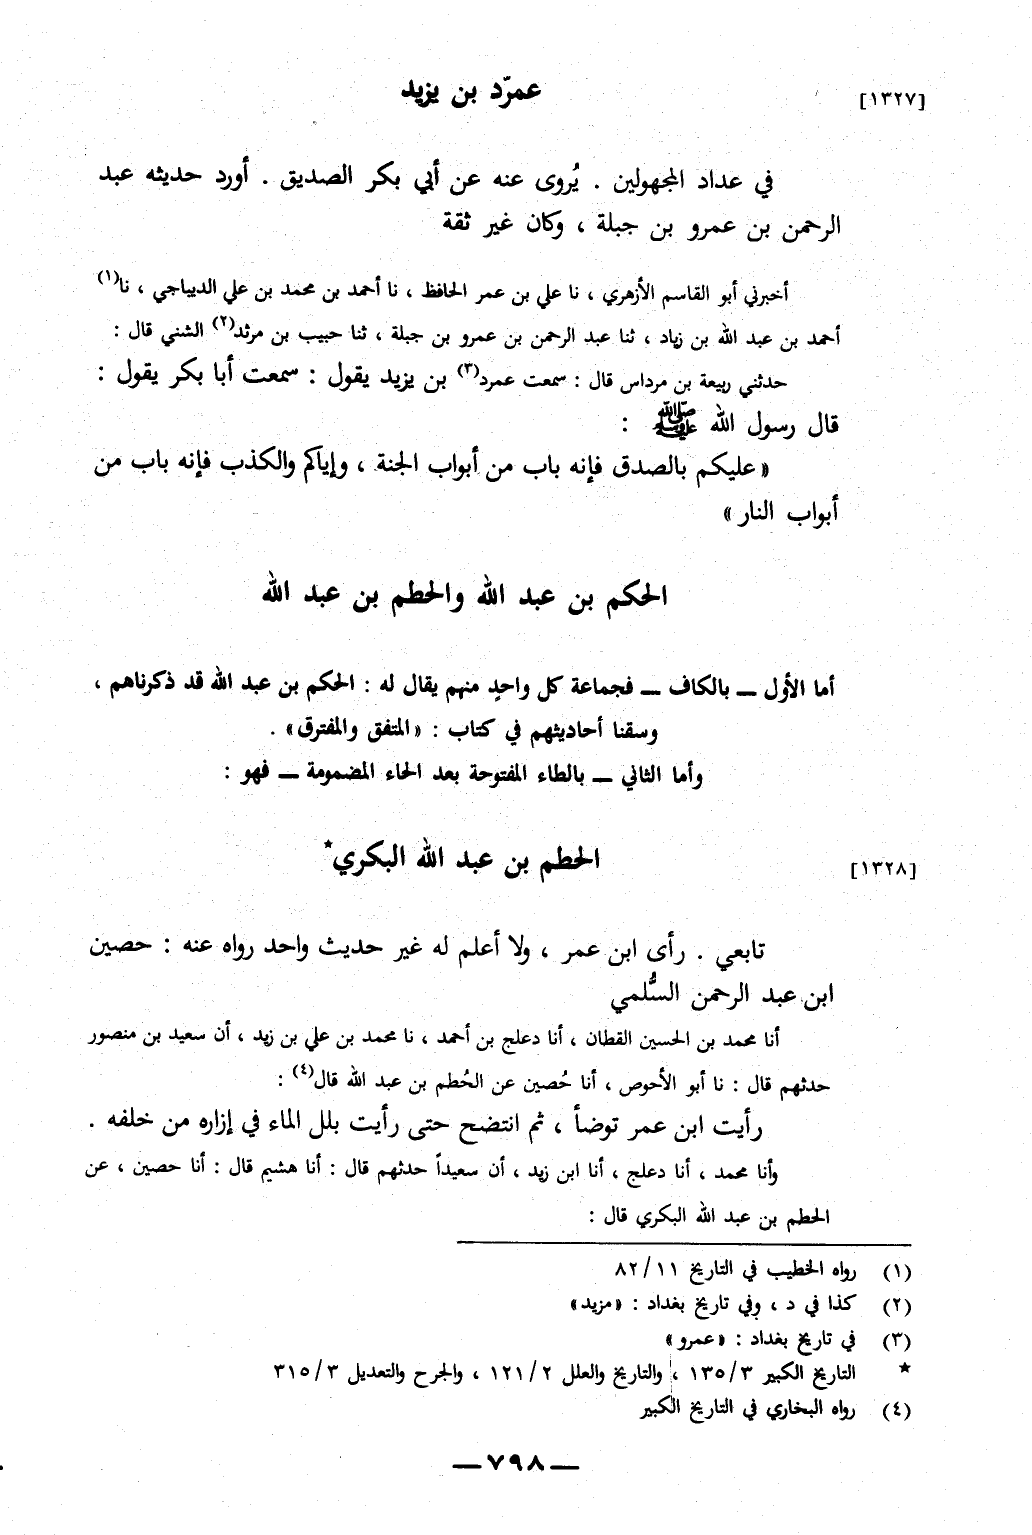 [١٣٢٧] عمرّد بن يزيد
في عداد المجهولين . يُروى عنه عن أبي بكر الصديق . أورد حديثه عبد
الرحمن بن عمرو بن جبلة ، وكان غير ثقة
أخبرني أبو القاسم الأزهري ، نا علي بن عمر الحافظ ، نا أحمد بن محمد بن علي الديباجي ، نا(١)
أحمد بن عبد الله بن زياد ، ثنا عبد الرحمن بن عمرو بن جبلة ، ثنا حبيب بن مرثد(٢) الشني قال :
حدثني ربيعة بن مرداس قال : سمعت عمرد(٣) بن يزيد يقول : سمعت أبا بكر يقول :
قال رسول الله ﷺ :
« عليكم بالصدق فإنه باب من أبواب الجنة ، وإياكم والكذب فإنه باب من
أبواب النار »
الحكم بن عبد الله والحطم بن عبد الله
أما الأول ــ بالكاف ــ فجماعة كل واحدٍ منهم يقال له : الحكم بن عبد الله قد ذكرناهم ،
وسقنا أحاديثهم في كتاب : «المتفق والمفترق» .
وأما الثاني ــ بالطاء المفتوحة بعد الحاء المضمومة ــ فهو :
[١٣٢٨] الحطم بن عبد الله البكري*
تابعي . رأى ابن عمر ، ولا أعلم له غير حديث واحد رواه عنه : حصين
ابن عبد الرحمن السُّلمي
أنا محمد بن الحسين القطان ، أنا دعلج بن أحمد ، نا محمد بن علي بن زيد ، أن سعيد بن منصور
حدثهم قال : نا أبو الأحوص ، أنا حُصين عن الحُطم بن عبد الله قال(٤) :
رأيت ابن عمر توضأ ، ثم انتضح حتى رأيت بلل الماء في إزاره من خلفه .
وأنا محمد ، أنا دعلج ، أنا ابن زيد ، أن سعيداً حدثهم قال : أنا هشيم قال : أنا حصين ، عن
الحطم بن عبد الله البكري قال :
(١) رواه الخطيب في التاريخ ٨٢/١١
(٢) كذا في د ، وفي تاريخ بغداد : «مزيد»
(٣) في تاريخ بغداد : «عمرو»
* التاريخ الكبير ١٣٥/٣ ، والتاريخ والعلل ١٢١/٢ ، والجرح والتعديل ٣١٥/٣
(٤) رواه البخاري في التاريخ الكبير
ــ ٧٩٨ ــ